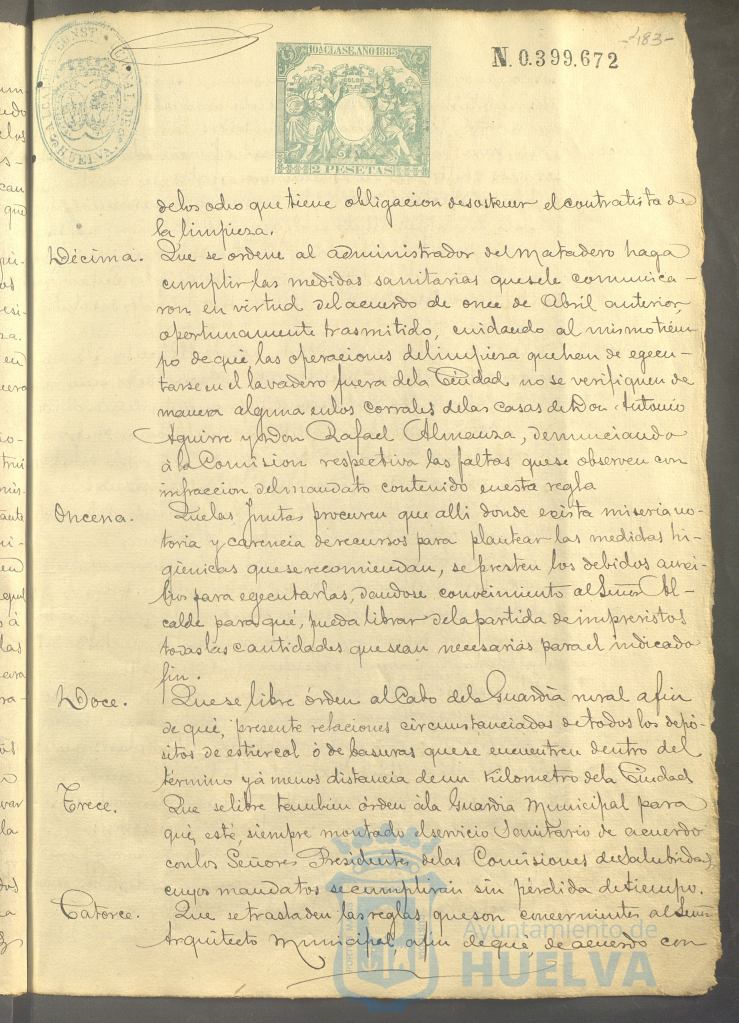 -483-
ALCALDIA CONSTITUCIONAL DE HUELVA.
10ª CLASE. AÑO 1885
2 PESETAS
N.0.399.672
delos ocho que tiene obligacion desostener el contratista de
la limpieza.
Décima. Que se ordene al administrador del Matadero haga
cumplir las medidas sanitarias quesele comunica-
ron, en virtud del acuerdo de once de Abril anterior,
oportunamente trasmitido, cuidando al mismo tiem-
po de que las operaciones delimpieza quehan de egecu-
tarse en el lavadero fuera dela Ciudad no se verifiquen de
manera alguna enlos corrales delas casas de Don Antonio
Aguirre y Don Rafael Almanza, denunciando
á la Comision respectiva las faltas quese observen con
infraccion del mandato contenido enesta regla
Oncena. Quelas Juntas procuren que alli donde exista miseria no-
toria y carencia de recursos para plantear las medidas hi-
gienicas quese recomiendan, se presten los debidos auxi-
lios para egecutarlas, dandose conocimiento al Señor Al-
calde para qué, pueda librar dela partida de imprevistos
todas las cantidades quesean necesarias para el indicado
fin.
Doce. Quese libre órden al Cabo dela Guardia rural afin
de qué, presente relaciones circunstanciadas de todos los depó-
sitos de estiercol ó de basuras quese encuentren dentro del
término y á menos distancia de un Kilometro dela Ciudad
Trece. Que selibre tambien órden ála Guardia Municipal para
qué, esté, siempre montado el servicio Sanitario de acuerdo
con los Señores Presidentes delas Comisiones de Salubridad,
cuyos mandatos se cumplirán sin pérdida de tiempo.
Catorce. Que se trasladen las reglas queson concernientes al Señor
Arquitecto Municipal, afin de qué, de acuerdo con
Ayuntamiento de
HUELVA